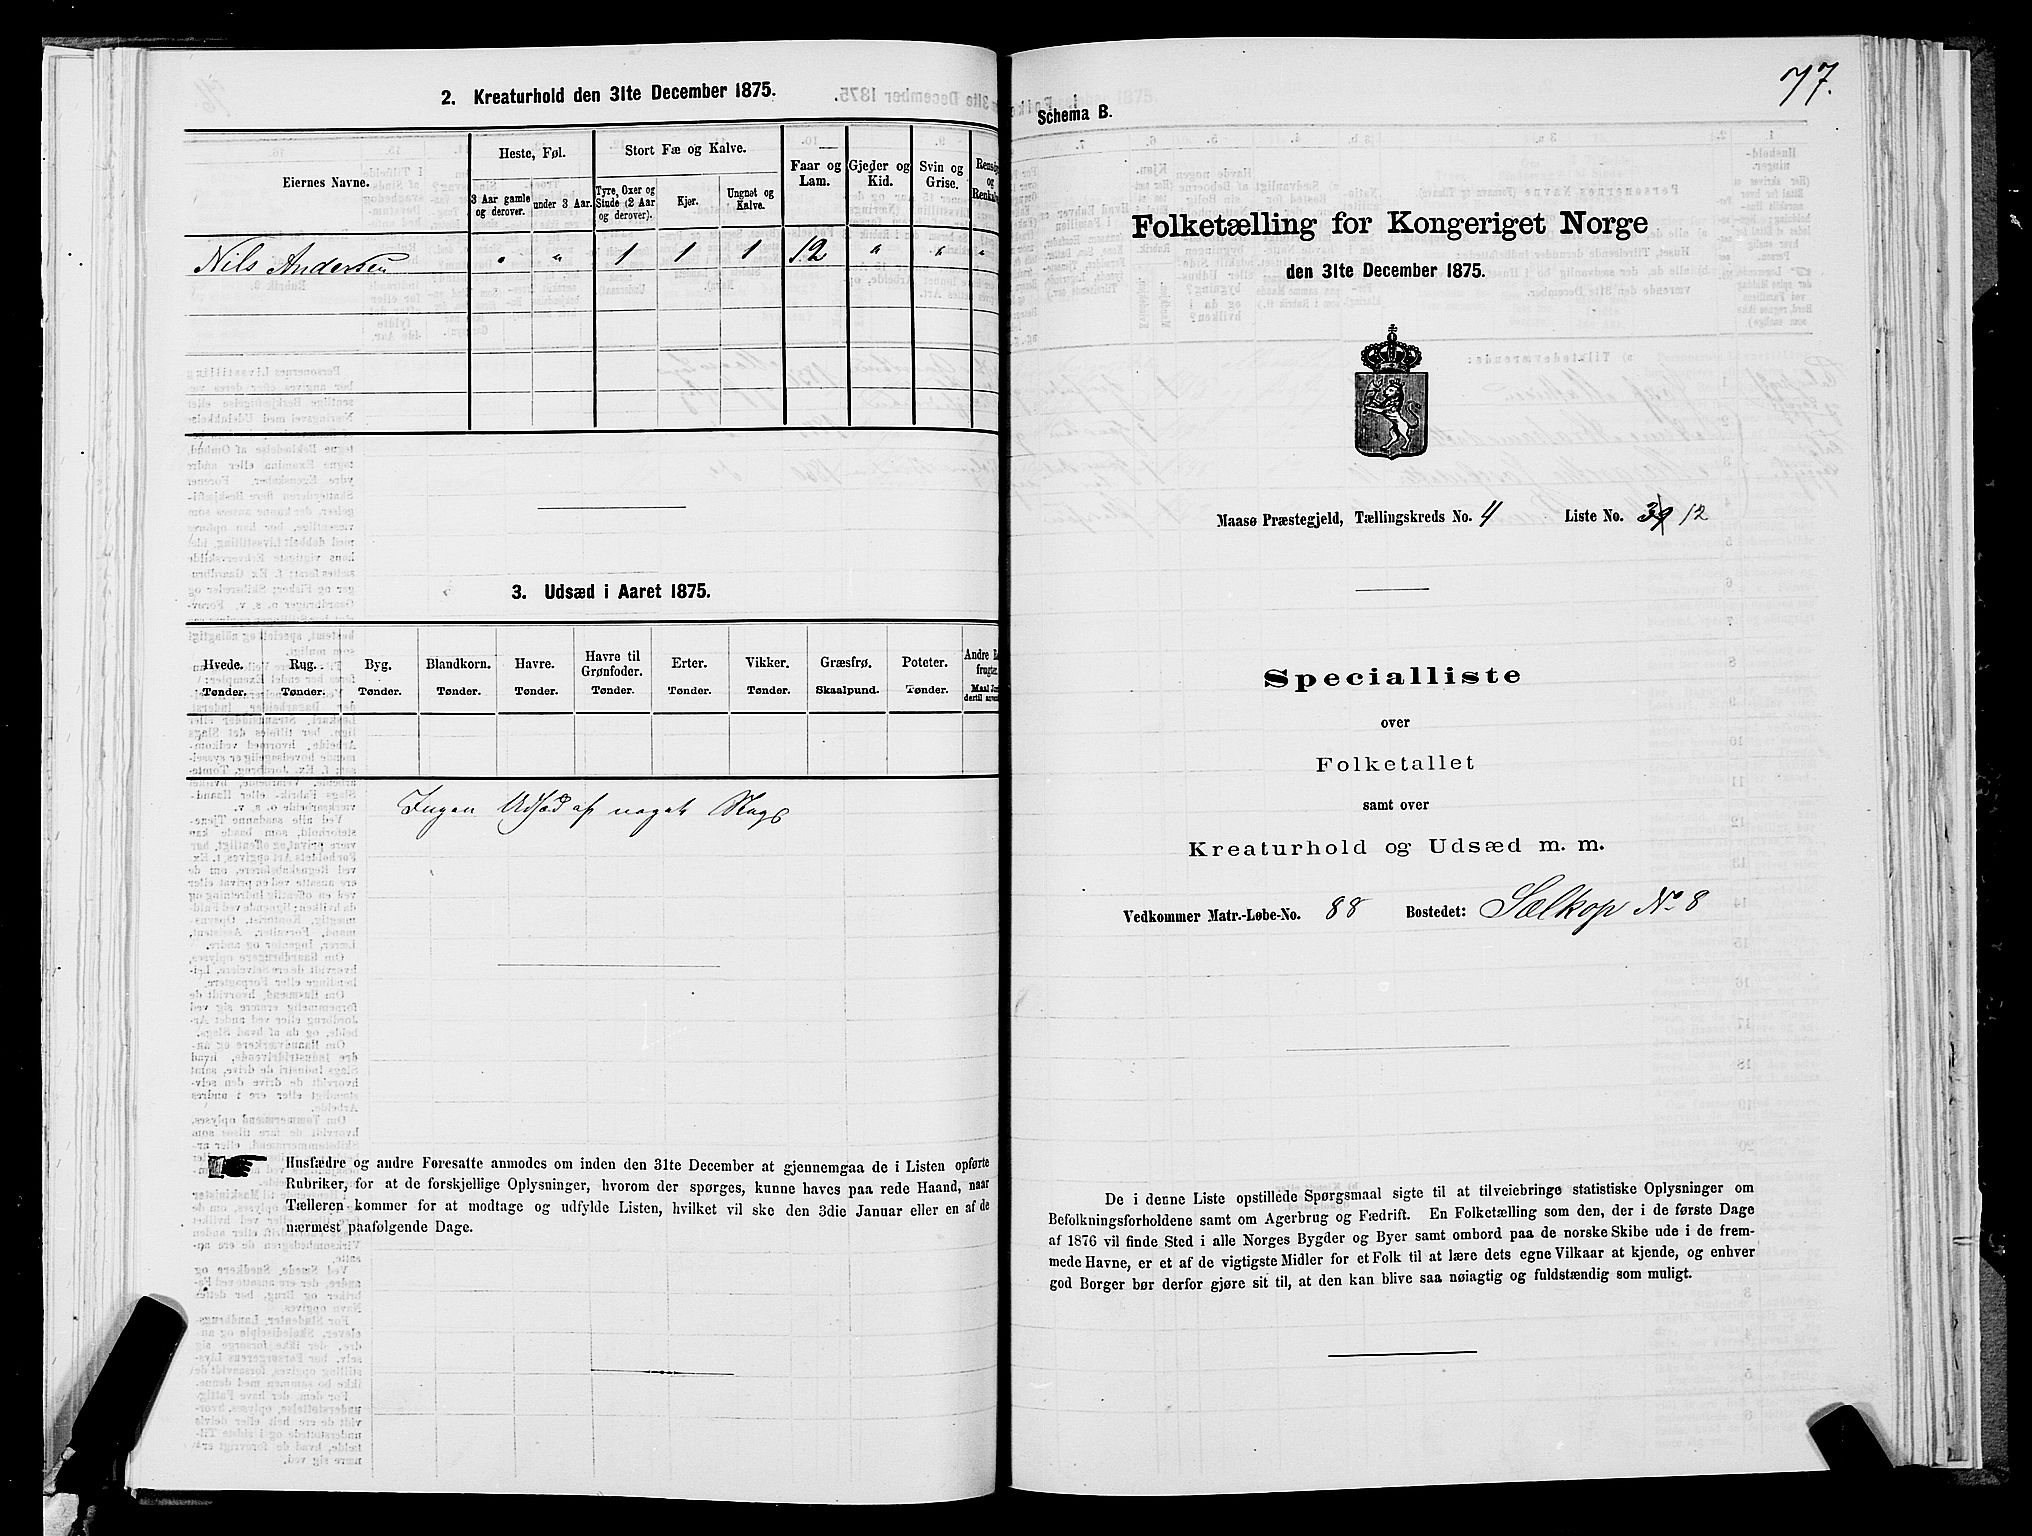 2. Kreaturhold den 31te December 1875.
Eiernes Navne.
Heste, Føl.
Stort Fæ og Kalve.
Faar og Lam.
Gjeder og Kid.
Svin og Grise.
3 Aar gamle og derover.
under 3 Aar.
Tyre, Oxer og Stude (2 Aar og derover).
Kjør.
Ungnøt og Kalve.
Nils Andersen " " 1 1 1 12 " " "
3. Udsæd i Aaret 1875.
Hvede. Rug. Byg. Blandkorn. Havre. Havre til Grønfoder. Erter. Vikker. Græsfrø. Poteter.
Tønder. Tønder. Tønder. Tønder. Tønder. Tønder. Tønder. Tønder. Skaalpund. Tønder.
Ingen Udsæd af noget Slags
Husfædre og andre Foresatte anmodes om inden den 31te December at gjennemgaa de i Listen opførte
Rubriker, for at de forskjellige Oplysninger, hvorom der spørges, kunne haves paa rede Haand, naar
Tælleren kommer for at modtage og udfylde Listen, hvilket vil ske den 3die Januar eller en af de
nærmest paafølgende Dage.
77.
Schema B.
Folketælling for Kongeriget Norge
den 31te December 1875.
Maasø Præstegjeld, Tællingskreds No. 4 Liste No. 12
Specialliste
over
Folketallet
samt over
Kreaturhold og Udsæd m. m.
Vedkommer Matr.-Løbe-No. 88 Bostedet: Sælkop No 8
De i denne Liste opstillede Spørgsmaal sigte til at tilveiebringe statistiske Oplysninger om
Befolkningsforholdene samt om Agerbrug og Fædrift. En Folketælling som den, der i de første Dage
af 1876 vil finde Sted i alle Norges Bygder og Byer samt ombord paa de norske Skibe ude i de frem-
mede Havne, er et af de vigtigste Midler for et Folk til at lære dets egne Vilkaar at kjende, og enhver
god Borger bør derfor gjøre sit til, at den kan blive saa nøiagtig og fuldstændig som muligt.